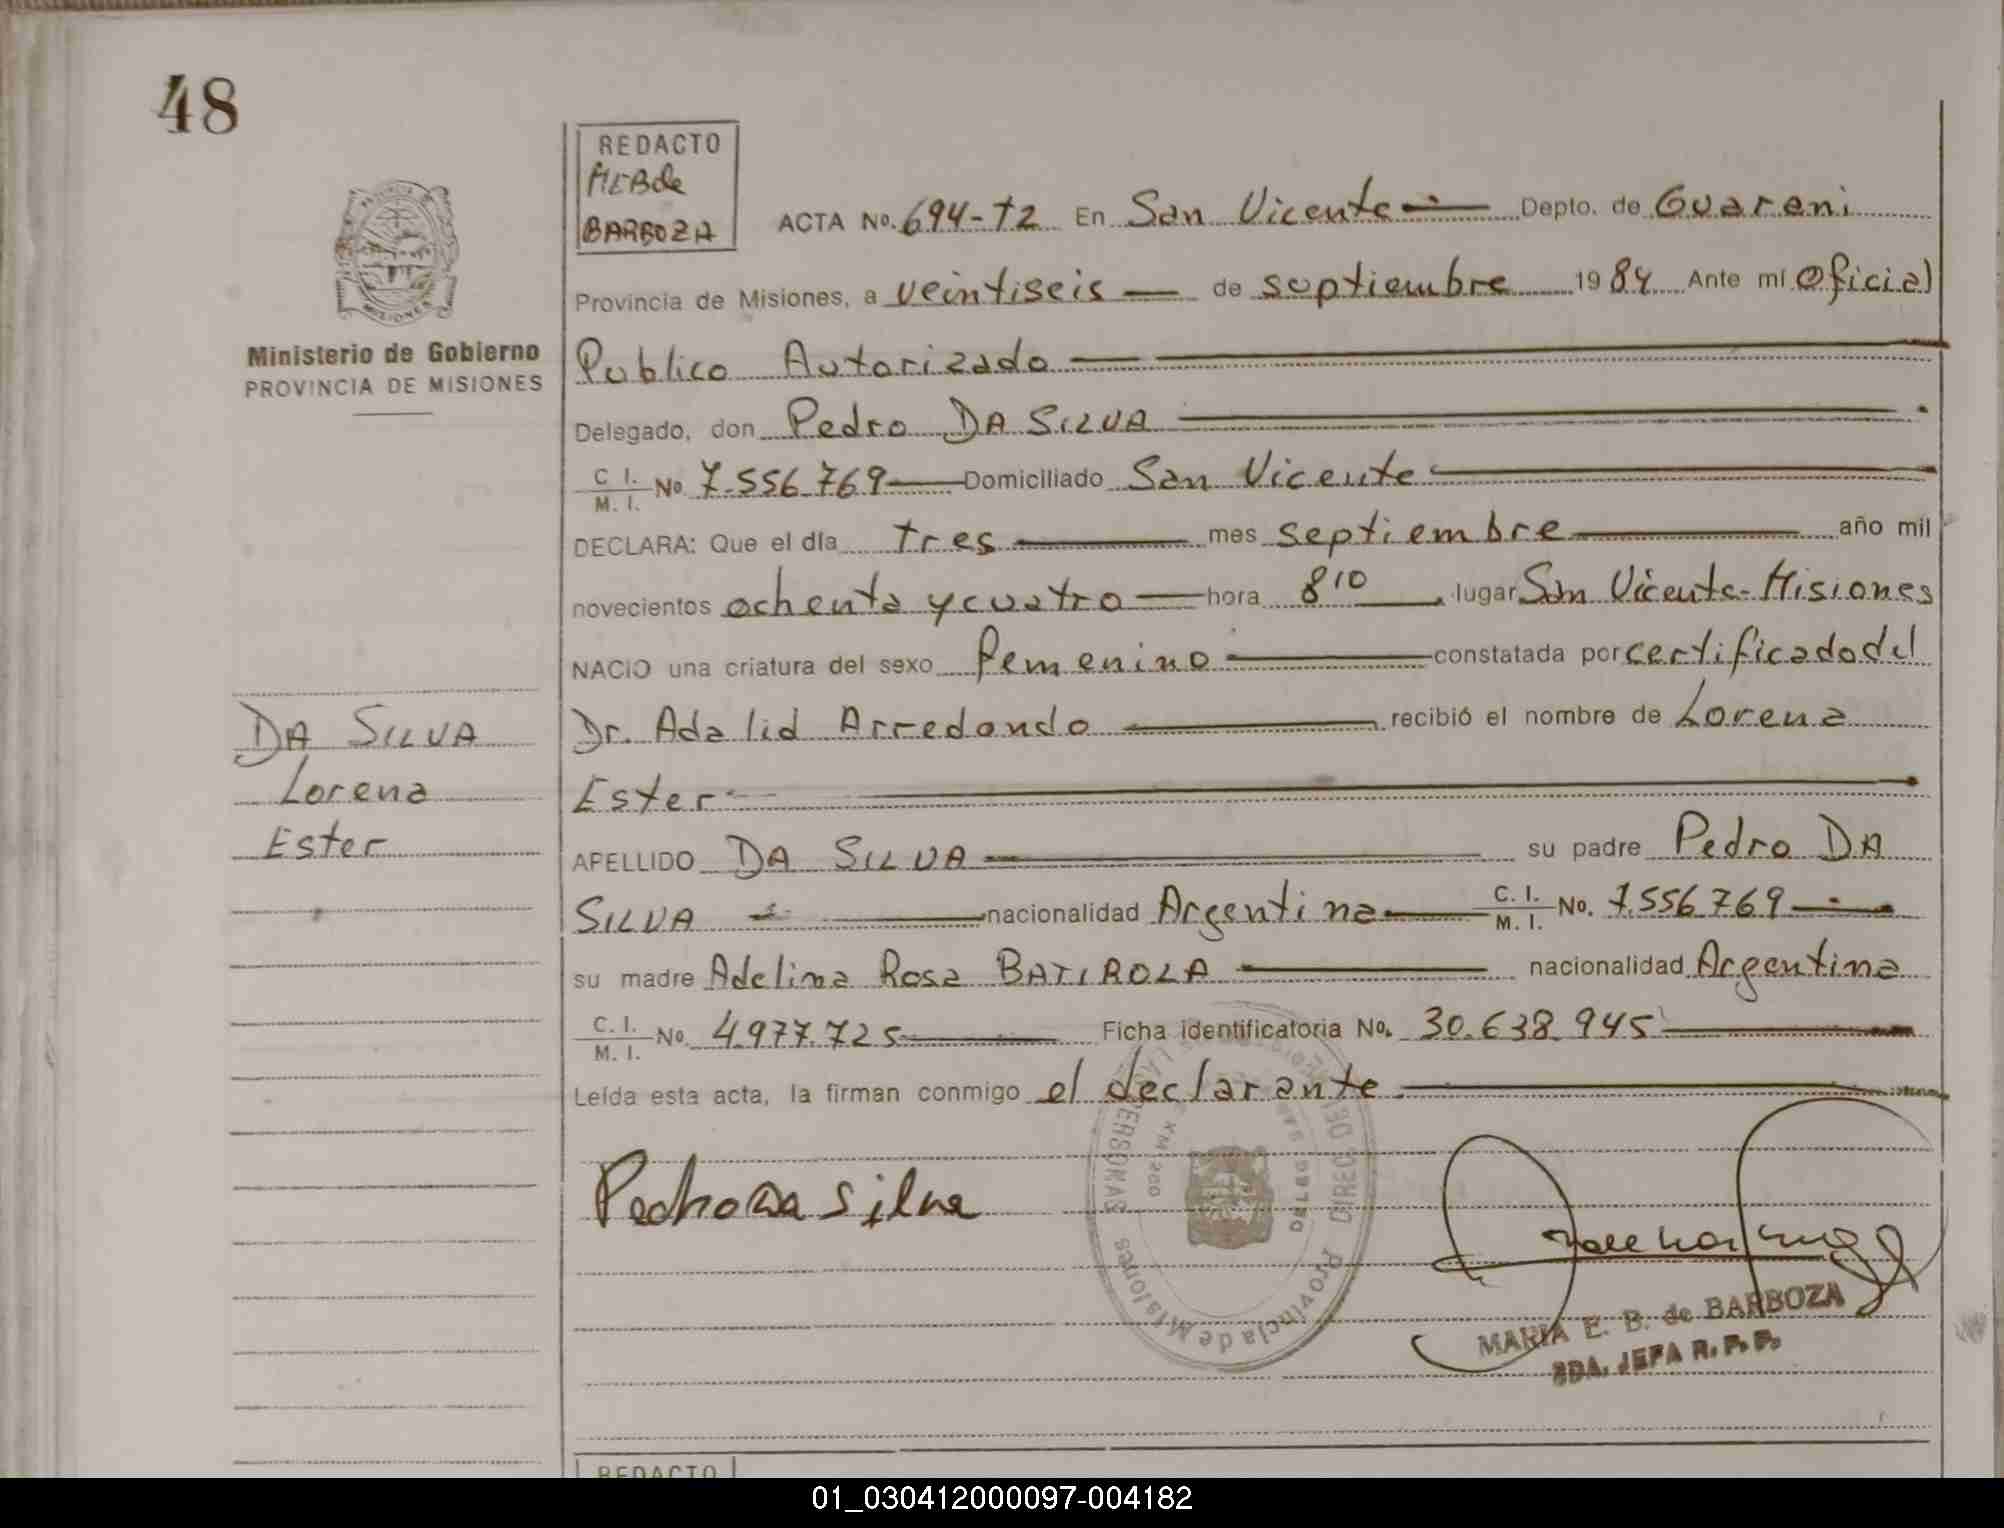 48
REDACTO
MEBde
BARBOZA
ACTA No. 694-T2 En San Vicente Depto. de Guarani
Provincia de Misiones, a veintiseis de septiembre 1984 Ante mí Oficial
Publico Autorizado
Delegado, don Pedro DA SILVA
C. I. / M. I. No. 7.556.769 Domiciliado San Vicente
DECLARA: Que el día tres mes septiembre año mil
novecientos ochenta y cuatro hora 8 10 lugar San Vicente-Misiones
NACIO una criatura del sexo femenino constatada por certificado del
Dr. Adalid Arredondo recibió el nombre de Lorena
Ester
APELLIDO DA SILVA su padre Pedro DA
SILVA nacionalidad Argentina C. I. / M. I. No. 7.556.769
su madre Adelina Rosa BATIROLA nacionalidad Argentina
C. I. / M. I. No. 4.977.725 Ficha identificatoria No. 30.638.945
Leída esta acta, la firman conmigo el declarante.
Ministerio de Gobierno
PROVINCIA DE MISIONES
DA SILVA
Lorena
Ester
Pedro Da Silva
Provincia de Misiones
PERSONAS
KM 200
MARIA E. B. de BARBOZA
JEFA R. P. P.
REDACTO
01_030412000097-004182